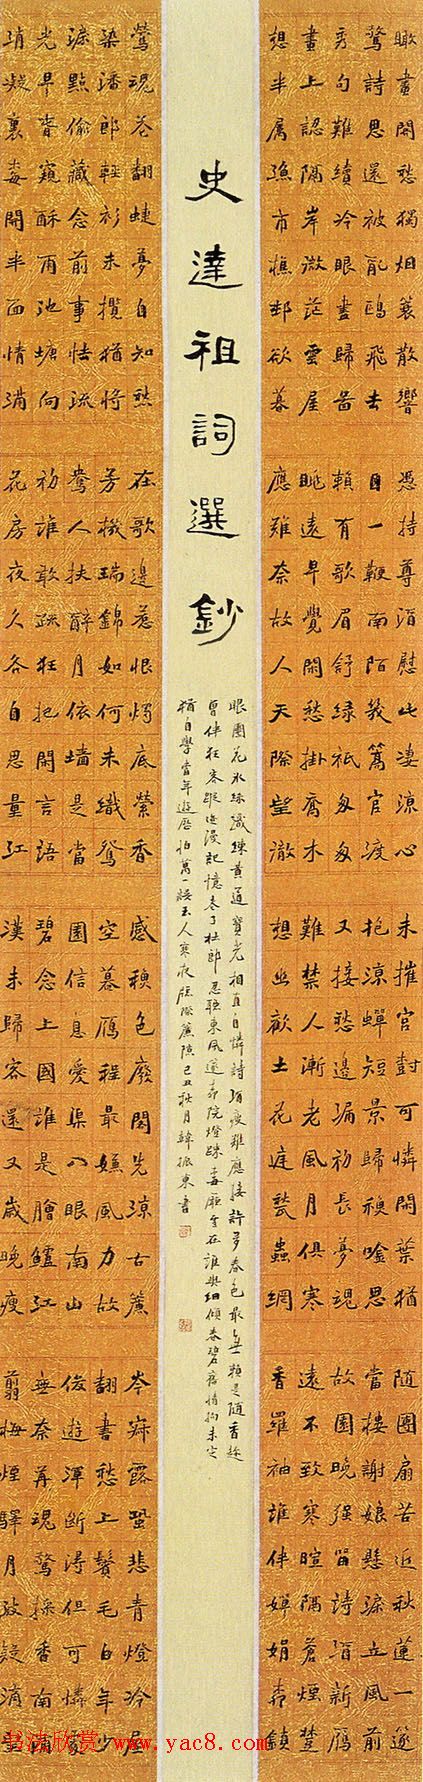 瞰畫閣愁獨烟蓑散響
驚詩思還被亂鷗飛去
秀句難續冷眼盡歸啚
畫上認隔岸微茫雲屋
想半属漁市樵邨欲暮
憑持尊酒慰此淒涼心
目一鞭南陌幾篙官渡
賴有歌眉舒緑衹匆匆
眺遠早覺閑愁掛喬木
應難奈故人天際望澈
未摧官對可憐閑葉猶
抱涼蟬短景歸穐唫思
又接愁邊漏初長夢魂
難禁人漸老風月俱寒
想幽歡土花庭甃蟲網
隨團扇苦近秋蓮一邃
當樓謝娘懸淚立風前
故園晚强留詩酒新雁
遠不致寒暄隔蒼煙楚
香羅袖誰伴嬋娟鎖
史達祖詞選鈔
眼圈花冰絲織練黄道寳光相直自憐詩酒瘦難應接許多春色最無賴是隨香趁
曾伴狂客蹤迹漫記憶老了杜郎忍聽東風笛院燈疎梅廳雪在誰與細傾春碧舊情拘未定
猶自學當年遊歷怕萬一誤玉人寒夜窻際簾隙己丑秋月韓振東書
鶯魂苍翻蜨夢自知愁
染潘郎輕衫未攬猶將
淚點偷藏念前事怯流
光早春窺酥雨池塘向
消凝裏梅開半面情滿
在歌邊惹恨燭底縈香
芳機瑞錦如何未織鴛
鴦人扶醉月依墻是當
初誰敢疏狂把閑言語
花房夜久各自思量江
感穐色廢閣先涼古簾
空暮雁程最嫵風力故
園信息愛渠入眼南山
碧念上國誰是膾鱸江
漢未歸客還又歲晚瘦
岑寂露蛩悲青燈冷屋
翻書愁上鬢毛白年少
俊遊渾斷得但可憐處
無奈苒魂驚採香南浦
翦梅煙驛月
书法欣赏 www.yac8.com